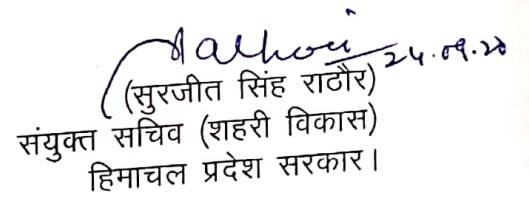 Rathour 24.09.20
(सुरजीत सिंह राठौर)
संयुक्त सचिव (शहरी विकास)
हिमाचल प्रदेश सरकार।